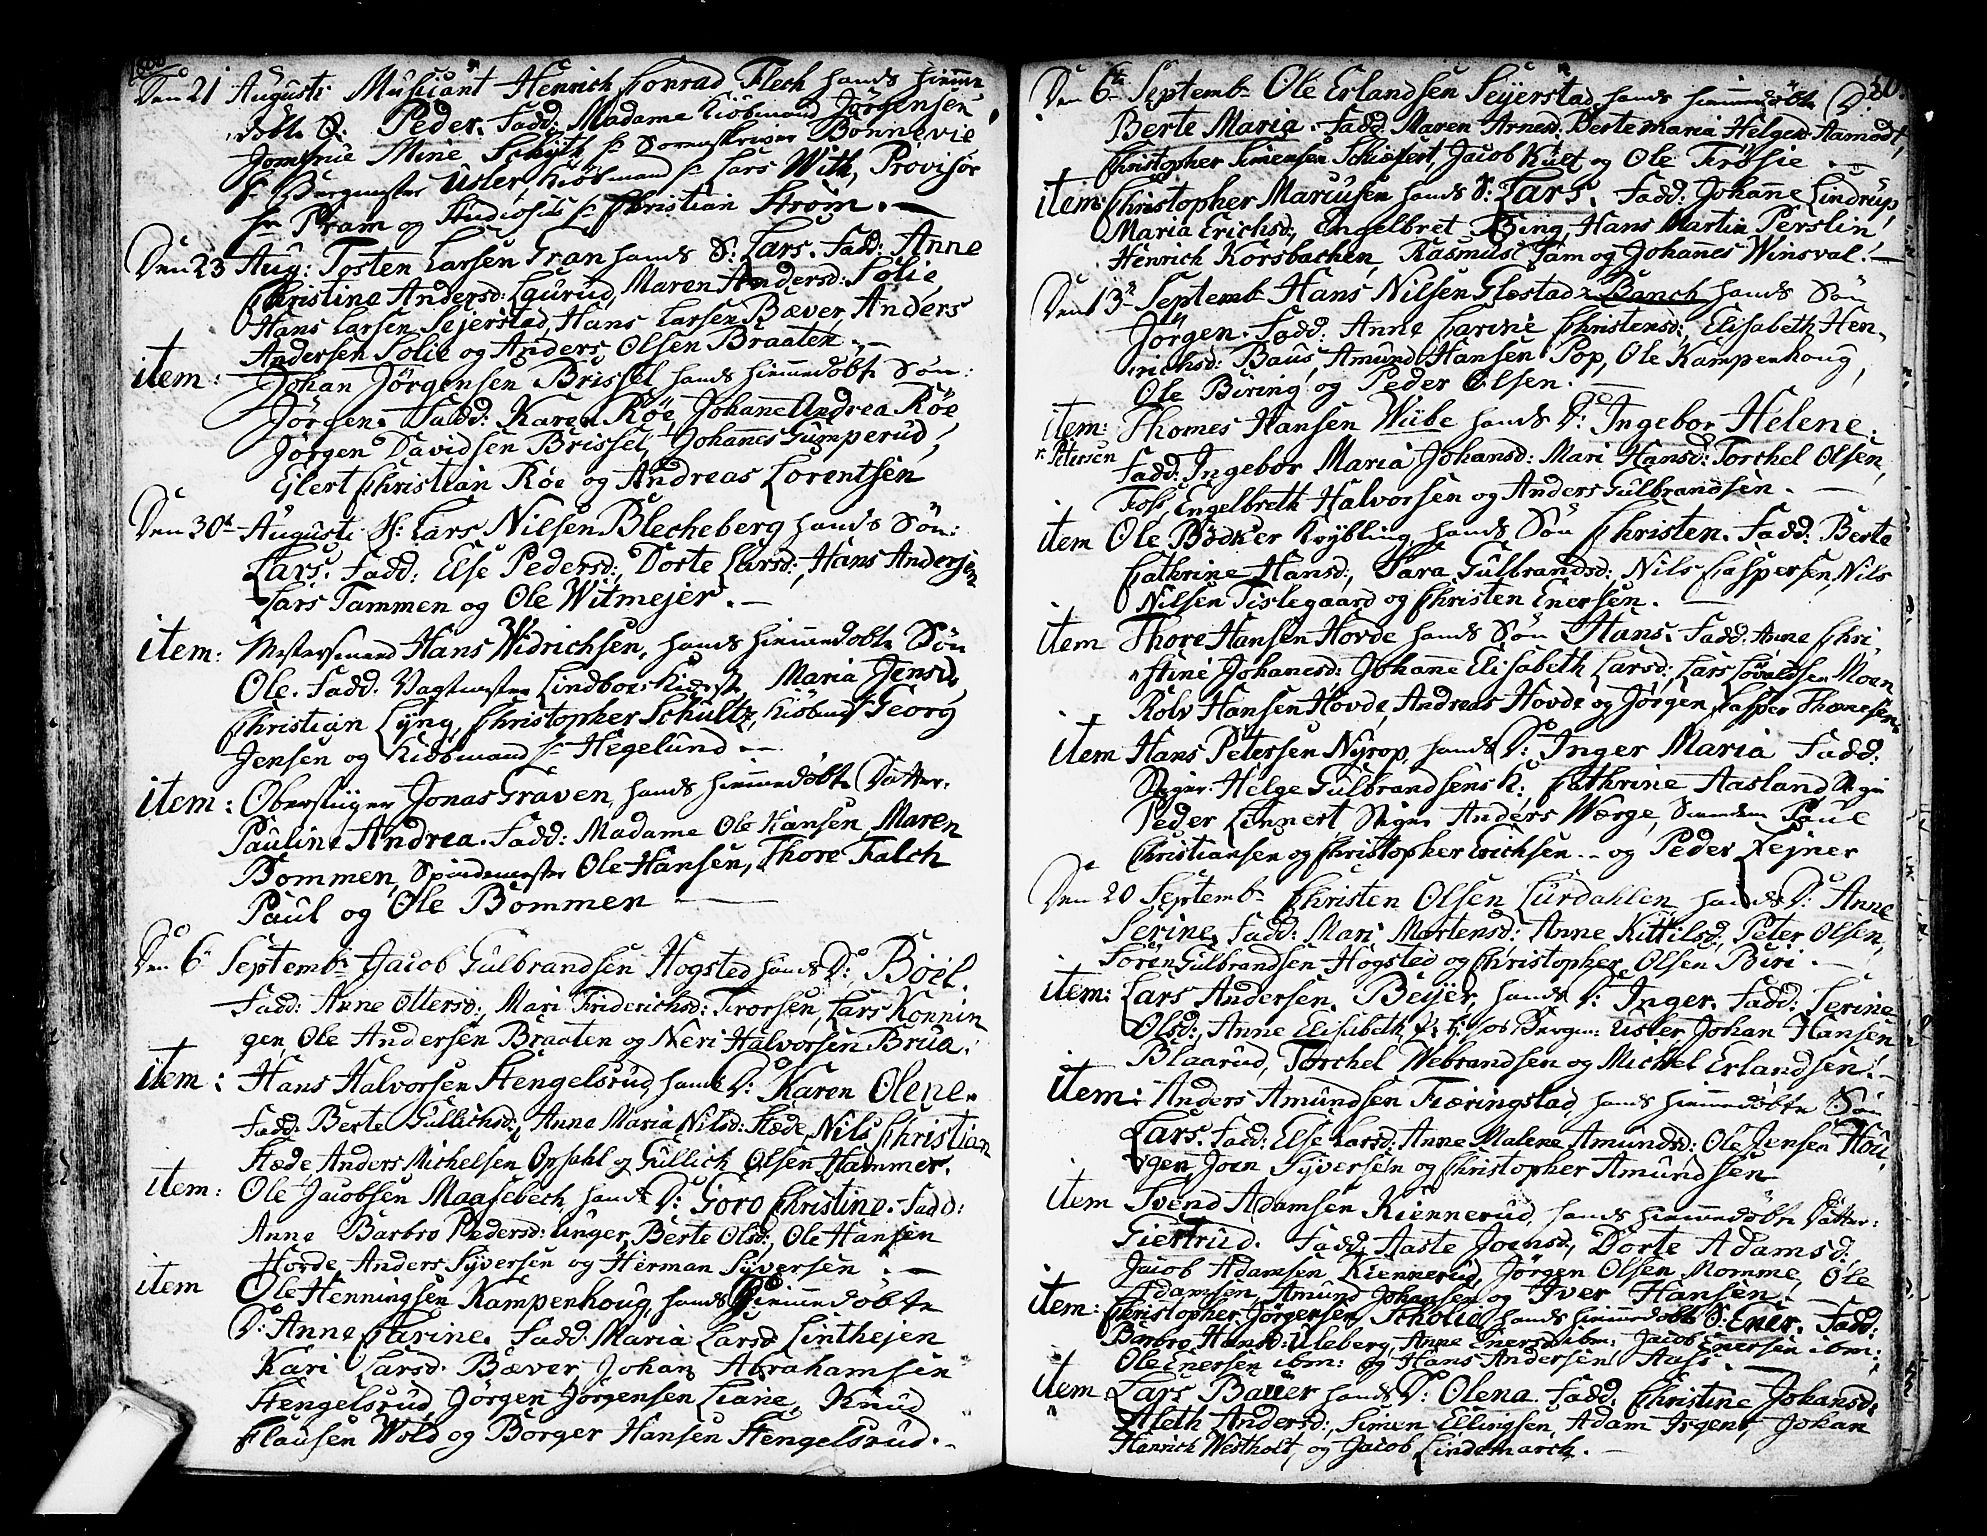 1800
Den 21 Augusti Musicant Henrich Conrad Flech hands hiemme
döbte S: Peder. Fadd: Madame Kiöbmand Jörgensen,
Jomfrue Mine Schÿtt Hr Sorenskriver Bonnevie
Hr Bergmester Usler, Kiöbmand Hr Lars With, Provisor
Hr Pram og Studiosus Hr Christian Ström.
Den 23 Aug: Tosten Larsen Gran hands S: Lars. Fadd: Anne
Christine Andersd: Laurud, Maren Andersd: Solie
Hans Larsen Sejerstad, Hans Larsen Bæver Anders
Andersen Solie og Anders Olsen Braaten.
item: Johan Jörgensen Brissel hands hiemmedöbte Sön:
Jörgen. Fadd: Karen Röe, Johanne Andrea Röe
Jörgen Davidsen Brissel, Johannes Gumperud,
Elert Christian Röe og Andreas Lorentsen
Den 30t Augusti S: Lars Nilsen Blecheberg hands Sön:
Lars. Fadd: Else Pedersd:, Dorte Larsd:, Hans Andersen
Lars Tammen og Ole Witmejer.
item: Mestersmand Hans Widrichsen, hands hiemmedöbte Sön
Ole. Fadd: Vagtmester Lindboes Kieste, Maria Jensd,
Christian Lÿng, Christopher Schultz, Kiöbmd Georg
Jensen og Kiöbmand Hr Hegelund
item: Oberstiger Jonas Graven, hands hiemmedöbte Datter:
Pauline Andrea. Fadd: Madame Ole Hansen, Maren
Bommen, Spindemester Ole Hansen, Thore Falch
Paul og Ole Bommen
Den 6 Septembr Jacob Gulbrandsen Hogsted hands D: Böel.
Fadd: Anne Ottersd:, Mari Friderichsd: Trorsen, Lars Konnin
gen, Ole Andersen Braaten og Neri Halvorsen Brua.
item: Hans Halvorsen Stengelsrud, hands D: Karen Olene.
Fadd: Berte Gullichsd:, Anne Maria Nilsd: Flæde, Nils Christian
Flæde Anders Michelsen Opsahl og Gullich Olsen Hammer.
item: Ole Jacobsen Maasebech, hands D: Goro Christine. Fadd:
Anne Barbro Pedersd: Unger, Berte Olsd:, Ole Hansen
Horde, Anders Syversen og Herman Syversen.
item Ole Henningsen Kampenhoug, hands hiemmedöbte
D: Anne Carine. Fadd: Maria Larsd Linthejen
Kari Larsd: Bæver Johan Abrahamsen
Stengelsrud, Jörgen Jörgensen Liane, Knud
Clausen Wold og Borger Hansen Stengelsrud.
Den 6te Septemb Ole Erlandsen Seyerstad hands hiemmedöbte D:
Berte Maria. Fadd: Maren Arnesd: Berte Maria Helgesd: Aamodt,
Christopher Simensen Schiefert, Jacob Kult og Ole Frösie
item: Christopher Mariusen hands S: Lars. Fadd: Johanne Lindrup,
Maria Erichsd:, Engelbret Bing, Hans Martin Perslin
Henrich Korsbachen, Rasmus Jam og Johannes Winsval.
Den 13 Septemb Hans Nilsen Glostad Banch hands Sön
Jörgen. Fadd: Anne Carine Christensd:, Elisabeth Hen,
richsd: Baus, Amund Hansen Pop, Ole Kampenhoug,
Ole Biring og Peder Olsen.
item: Thomes Hansen Wibe hands D: Ingebor Helene.
r. Petersen
Fadd: Ingebor Maria Johansd: Mari Hansd: Torchel Olsen,
Foss, Engelbreth Halvorsen og Anders Gulbrandsen.
item Ole Bödker Krybling, hands Sön Christen. Fadd: Berte
Cathrine Hansd:, Sara Gulbrandsd: Nils Caspersen, Nils
Nilsen Tislegaard og Christen Enersen.
item Thore Hansen Hovde hands Sön Hans. Fadd: Anne Chri,
stine Johanesd: Johanne Elisabeth Larsd: Lars Lövaldsen Moen
Rolv Hansen Hovde, Andreas Hovde og Jörgen Casper Thomesen
item Hans Petersen Nyrop, hands D: Inger Maria Fadd:
Stiger Helge Gulbrandsens K: Cathrine Aasland Stiger
Peder Linnert Stiger Anders Wærge, Paul
Christiansen og Christopher Erichsen -- og Peder Lejner
Den 20 Septemb Christen Olsen Lurdahlen hands D: Anne
Serine. Fadd: Mari Mortensd: Anne Kittilsd:, Peter Olsen,
Sören Gulbrandsen Högsted og Christopher Olsen Biri.
item: Lars Andersen Beijer, hands D: Inger. Fadd: Serine
Olsd:, Anne Elisabeth hos Bergm: Usler Johan Hansen
Blaarud, Torchel Webrandsen og Michel Erlandsen.
item: Anders Amundsen Fiæringstad, hands hiemmedöbte Sön
Lars. Fadd: Else Larsd: Anne Malene Amundsd: Ole Jensen Hou,
gen, Joen Syversen og Christopher Amundsen
item Svend Adamsen Kiennerud, hands hiemmedöbte Datter:
Giertrud. Fadd: Aaste Joensd:, Dorte Adamsd.
Jacob Adamsen Kiennerud, Jörgen Olsen Momme, Ole
Adamsen, Amund Johansen og Iver Hansen.
item: Christopher Jörgensen Scholie, hands hiemmedöbte S: Ener. Fadd:
Barbro Hansd: Uleberg, Anne Enersd ibm: Jacob Enersen ibm:
Ole Enersen ibm: og Hans Andersen Aass.
item Lars Bauer hands D: Olena. Fadd: Christine Johansd:
Aleth Andersd:, Simen Ellingsen, Adam Irgent, Johan
Henrich Westholt, og Jacob Lindemarch.